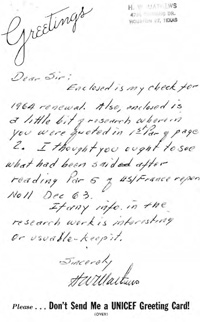 Greetings
H. W. MATHEWS
HOUSTON 21, TEXAS
Dear Sir:
Enclosed is my check for
1964 renewal. Also, enclosed is
a little bit of research wherein
you were quoted in 1st Par of page
2. I thought you ought to see
what had been said after
reading Par 5 of US/France report
No 11 Dec 63.
If any info. in the
research work is interesting
or usuable - keep it.
Sincerely
HW Mathews
Please... Don't Send Me a UNICEF Greeting Card!
(OVER)